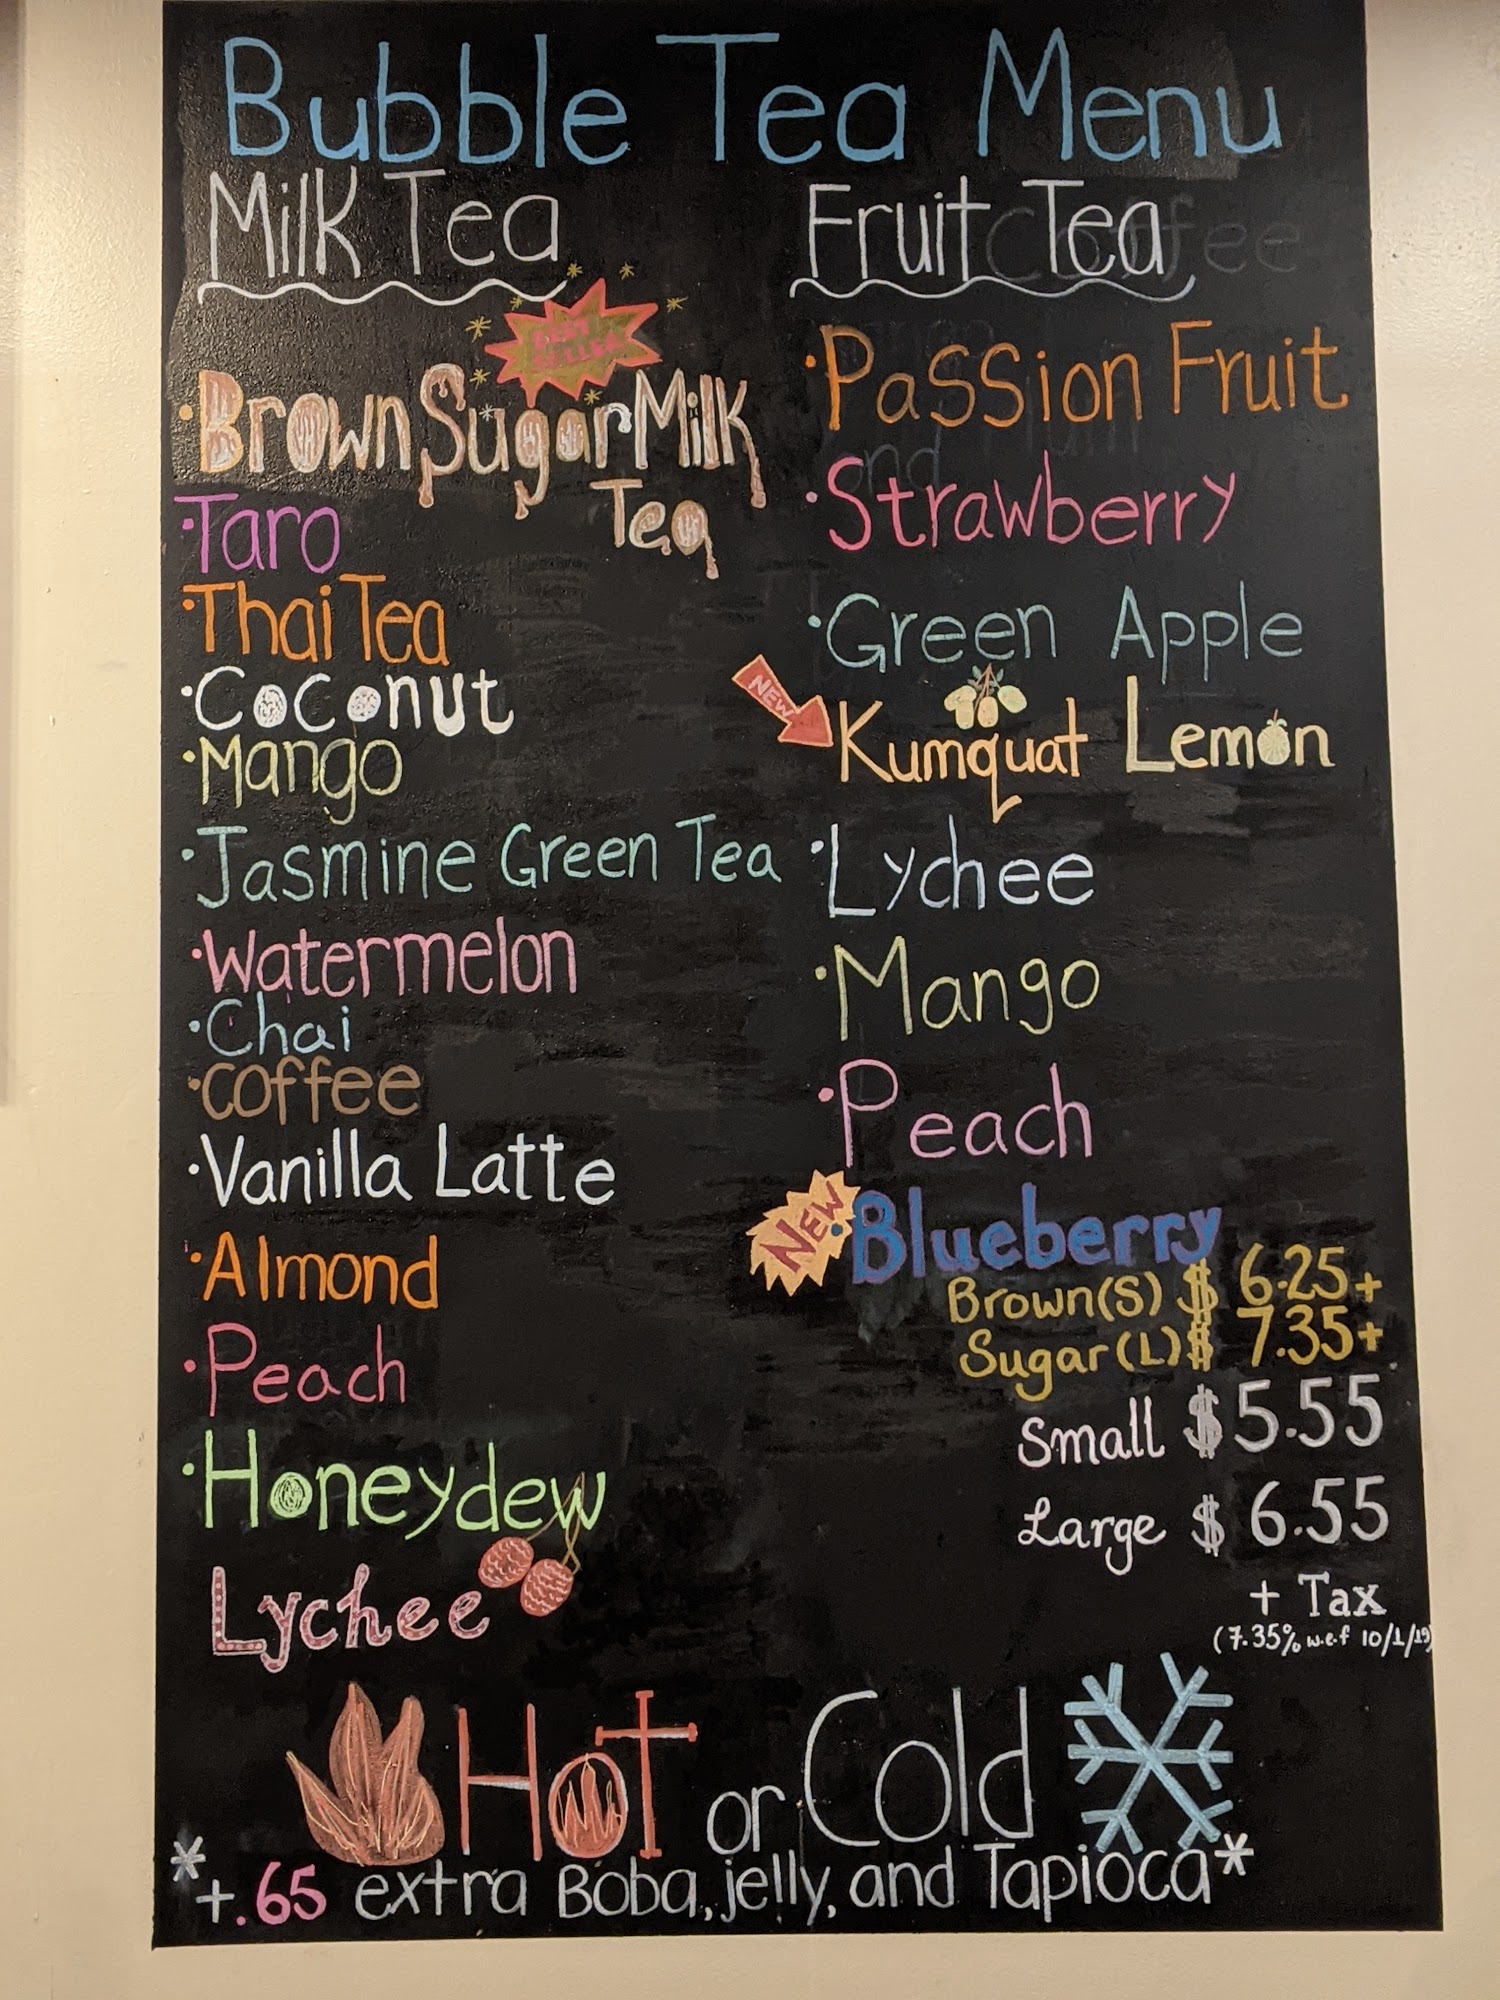 Bubble Tea Menu
Milk Tea
BEST
SELLER
• Brown Sugar Milk
Tea
• Taro
• Thai Tea
• Coconut
• Mango
• Jasmine Green Tea
• Watermelon
• Chai
• Coffee
• Vanilla Latte
• Almond
• Peach
• Honeydew
Lychee
Fruit Tea
Coffee
• Passion Fruit
• Strawberry
• Green Apple
NEW
Kumquat Lemon
• Lychee
• Mango
• Peach
NEW
• Blueberry
Brown (S) $ 6.25+
Sugar (L) $ 7.35+
Small $ 5.55
Large $ 6.55
+ Tax
(7.35% w.e.f 10/1/19)
Hot or Cold
*+.65 extra Boba, jelly, and Tapioca*